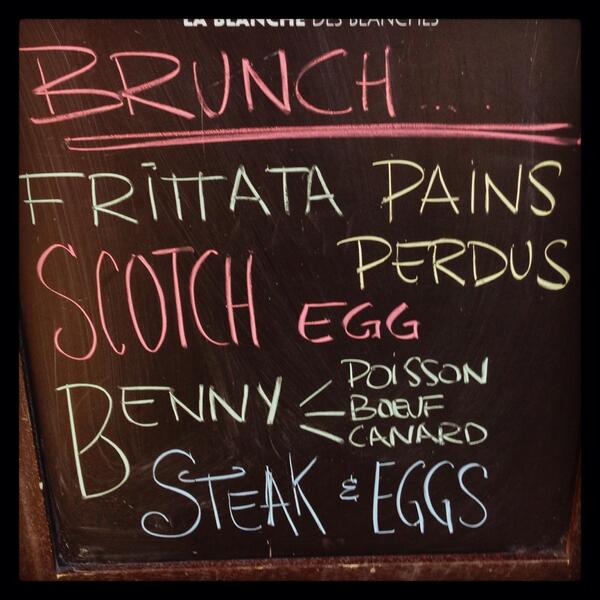 LA BLANCHE DES BLANCHES
BRUNCH....
FRITTATA
PAINS
PERDUS
SCOTCH EGG
BENNY
POISSON
BOEUF
CANARD
STEAK & EGGS